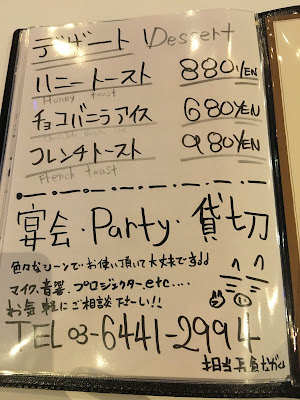 デザート Dessert
ハニートースト 880YEN
Honey toast
チョコバニラアイス 680YEN
フレンチトースト 980YEN
French toast
宴会・Party・貸切
色々なシーンでお使い頂いて大丈夫です♪♪
マイク、音響、プロジェクター、etc....
お気軽にご相談下さーい!!
TEL 03-6441-2994
担当